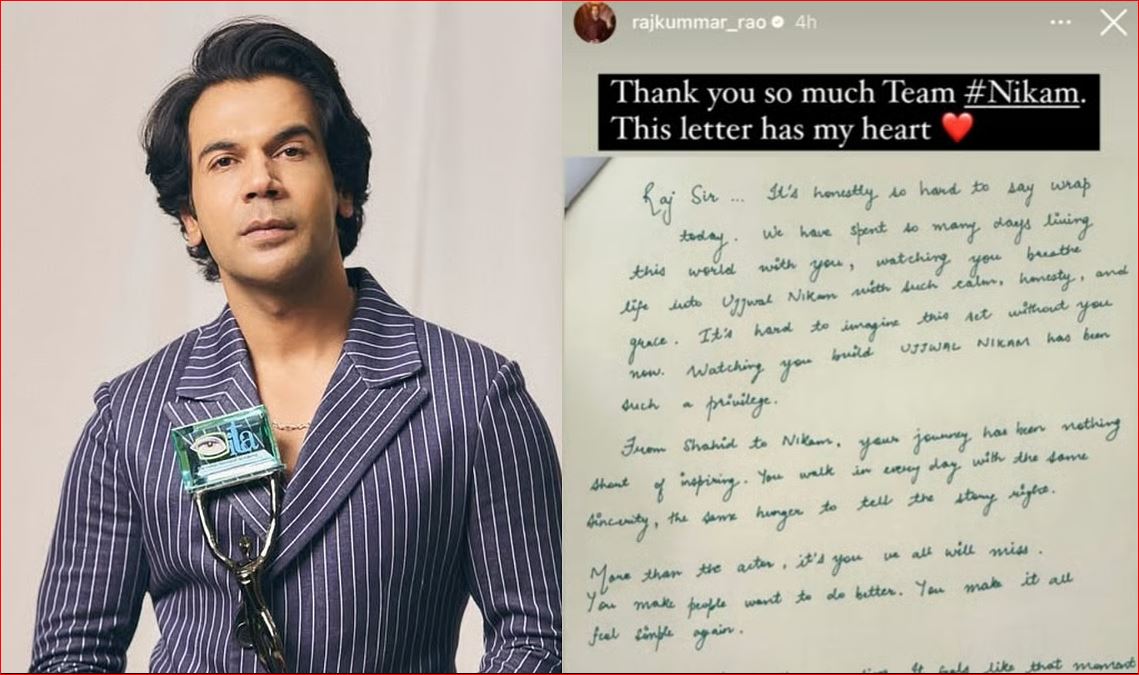 ita
rajkummar_rao 4h
Thank you so much Team #Nikam.
This letter has my heart ❤️
Raj Sir ... It's honestly so hard to say wrap
today. We have spent so many days living
this world with you, watching you breathe
life into Ujjwal Nikam with such calm, honesty, and
grace. It's hard to imagine this set without you
now. Watching you build UJJWAL NIKAM has been
such a privilege.
From Shahid to Nikam, your journey has been nothing
short of inspiring. You walk in every day with the same
sincerity, the same hunger to tell the story right.
More than the actor, it's you we all will miss.
You make people want to do better. You make it all
feel simple again.
It feels like that moment